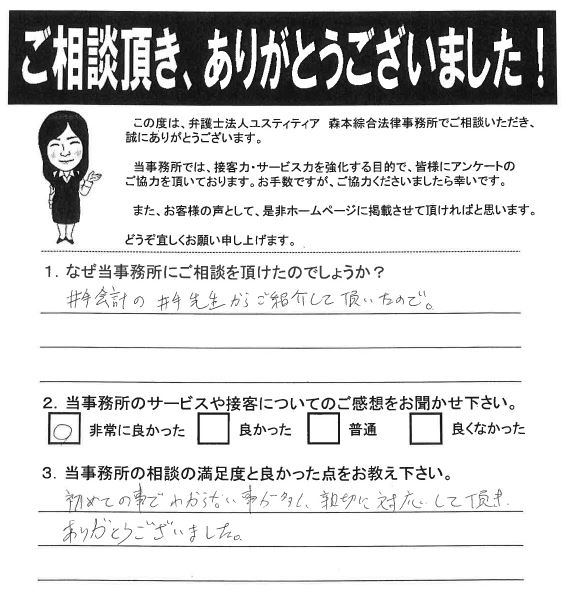 ご相談頂き、ありがとうございました！
この度は、弁護士法人ユスティティア 森本綜合法律事務所でご相談いただき、
誠にありがとうございます。
当事務所では、接客力・サービス力を強化する目的で、皆様にアンケートの
ご協力を頂いております。お手数ですが、ご協力くださいましたら幸いです。
また、お客様の声として、是非ホームページに掲載させて頂ければと思います。
どうぞ宜しくお願い申し上げます。
1．なぜ当事務所にご相談を頂けたのでしょうか？
井手会計の 井手先生からご紹介して頂いたので。
2．当事務所のサービスや接客についてのご感想をお聞かせ下さい。
○ 非常に良かった 良かった 普通 良くなかった
3．当事務所の相談の満足度と良かった点をお教え下さい。
初めての事でわからない事が多く、親切に対応して頂き
ありがとうございました。